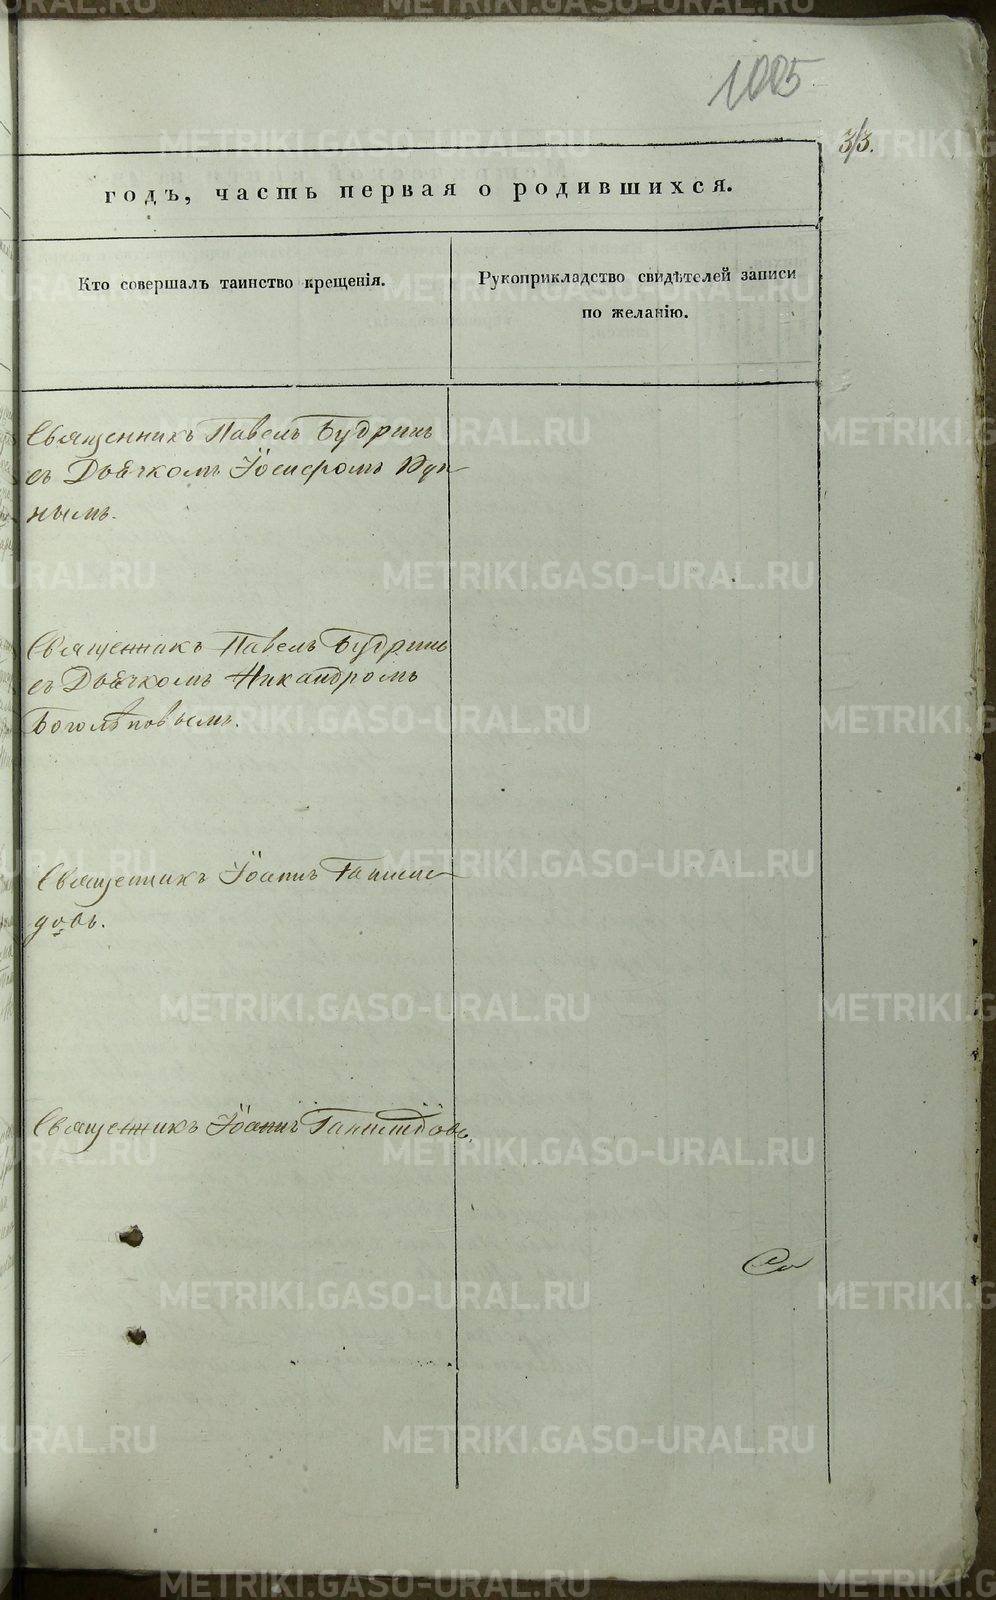 1005
313.
годъ, часть первая о родившихся.
Кто совершалъ таинство крещенія.
Рукоприкладство свидѣтелей записи
по желанію.
Священникъ Павелъ Будринъ
съ Дьячкомъ Іосифомъ
нымъ.
Священникъ Павелъ Будринъ
съ Дьячкомъ Никандромъ
Боголѣповымъ.
Священникъ Іоаннъ
довъ.
Священникъ Іоаннъ
METRIKI.GASO-URAL.RU